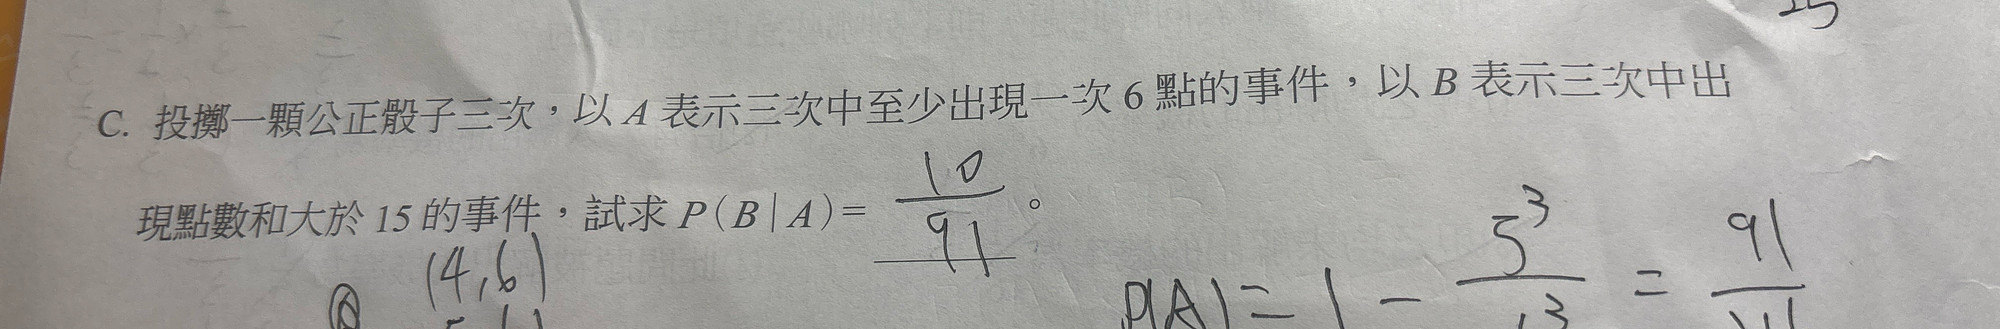 C. 投擲一顆公正骰子三次，以 A 表示三次中至少出現一次 6 點的事件，以 B 表示三次中出
現點數和大於 15 的事件，試求 P(B|A)= 10/91 。
(4,6)
P(A)=1-5³/ = 91/